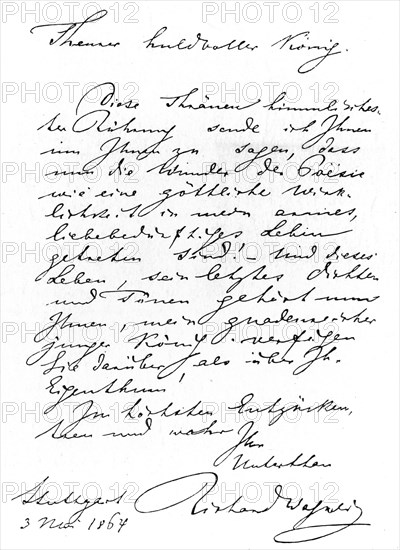 Theurer huldvoller König.
Diese Thränen himmlisches-
ter Rührung sende ich Ihnen
um Ihnen zu sagen, dass
nun die Wunder der Poësie
wie eine göttliche Wirk-
lichkeit in mein armes,
liebebedürftiges Leben
getreten sind! – Und dieses
Leben, sein letztes Dichten
und Tönen gehört nun
Ihnen, mein gnadenreicher
junger König: verfügen
Sie darüber, als über Ihr
Eigenthum!
Im höchsten Entzücken,
treu und wahr
Ihr
Unterthan
Stuttgart
3 Mai 1864
Richard Wagner